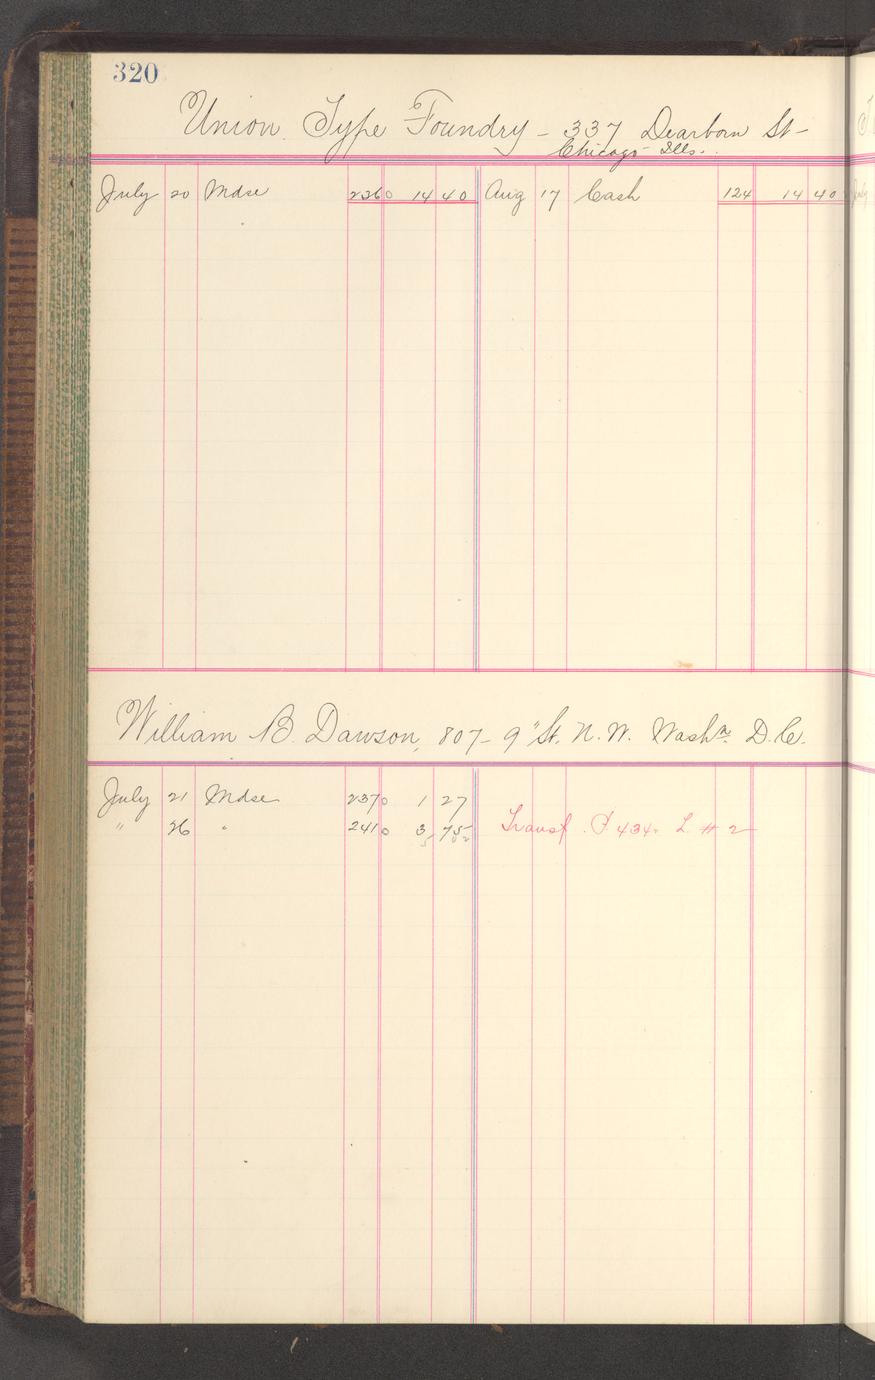 320
Union Type Foundry - 337 Dearborn St -
Chicago Ills.
July 20 Mdse 2360 14 40 Aug 17 Cash 124 14 40
William B. Dawson, 807 - 9" St. N. W. Washn. D. C.
July 21 Mdse 2370 1 27
" 26 " 2410 3 75 Transf. P 434. L # 2
5 02